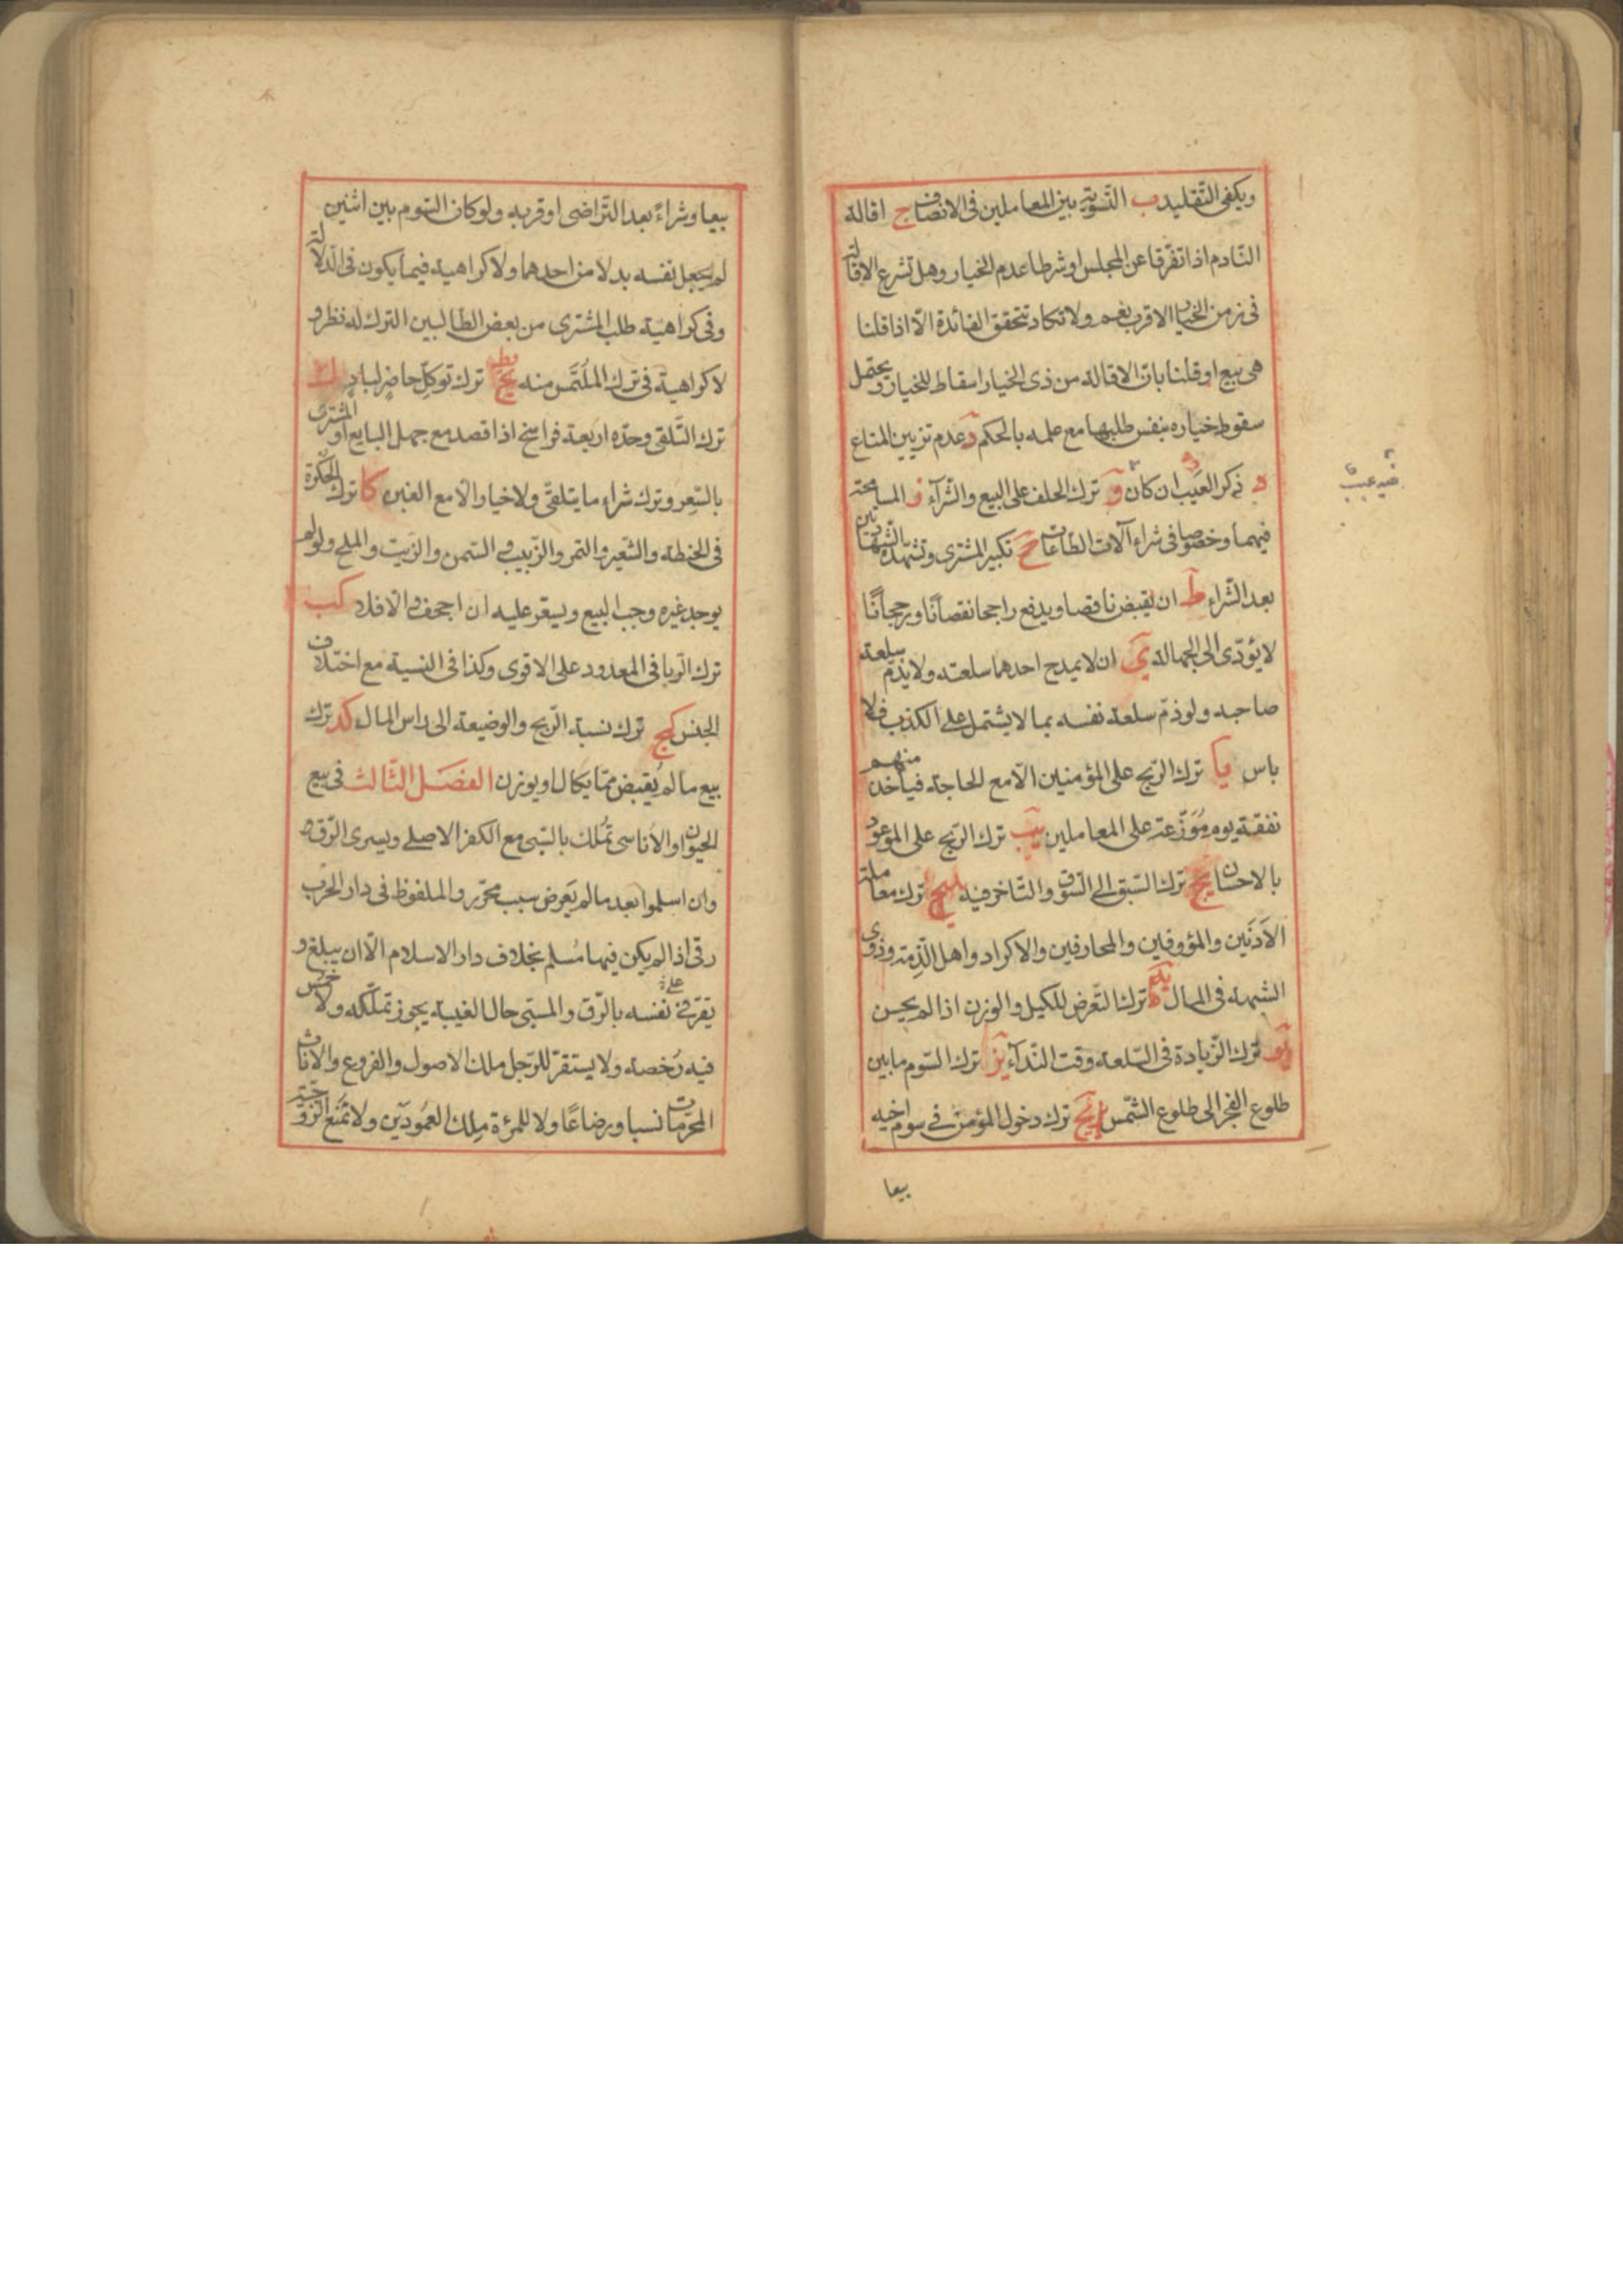 ويكفى التقليد ب التسوية بين المعاملين فى الانصاف ج اقالة
النادم اذا تفرقا عن المجلس او شرطا عدم الخيار وهل تشرع الاقالة
فى زمن الخيار الاقرب نعم ولا تكاد تتحقق الفائدة الّا اذا قلنا
هى بيع او قلنا بان الاقالة من ذى الخيار اسقاط للخيار ويحتمل
سقوط خياره بنفس طلبها مع علمه بالحكم د عدم تزيين المتاع
ه ذكر العيب ان كان و ترك الحلف على البيع والشراء ز المسامحة
فيهما وخصوصا فى شراء آلات الطاعات ح تكبير المشترى وتشهده الشهادتين
بعد الشراء ط ان يقبض ناقصا ويدفع راجحا نقصانًا ورجحانًا
لا يؤدّى الى الجهالة ى ان لا يمدح احدهما سلعته ولا يذمّ سلعة
صاحبه ولو ذمّ سلعة نفسه بما لا يشتمل على الكذب فلا
باس يا ترك الربح على المؤمنين الّا مع الحاجة فياخذ منهم
نفقة يوم مُوَزّعة على المعاملين يب ترك الربح على الموعود
بالاحسان يج ترك السبق الى السوق والتاخر فيه ترك معاملة
الادنَين والمؤوفين والمحارفين والاكراد واهل الذمة وذوى
الشبهة فى المال يه ترك التعرض للكيل والوزن اذا لم يحسن
يو ترك الزيادة فى السلعة وقت النداء يز ترك السوم ما بين
طلوع الفجر الى طلوع الشمس يح ترك دخول المؤمن فى سوم اخيه
بيعا
بيعا وشراءً بعد التراضى او قربه ولو كان السوم بين اثنين
لم يجعل نفسه بدلا من احدهما ولا كراهية فيما يكون فى الدلالة
وفى كراهية طلب المشترى من بعض الطالبين الترك له نظر و
لا كراهية فى ترك الملتمس منه يط ترك توكل حاضر لباد ك
ترك التلقى وحدّه اربعة فراسخ اذا قصد مع جهل البايع او المشترى
بالسّعر وترك شراء ما يتلقى ولا خيار الّا مع الغبن كا ترك الحكرة
فى الحنطة والشعير والتمر والزبيب و السمن والزيت والملح ولو لم
يوجد غيره وجب البيع ويسعّر عليه ان اجحف والّا فلا كب
ترك الربا فى المعدود على الاقوى وكذا فى النسية مع اختلاف
الجنس كج ترك نسبة الربح والوضيعة الى راس المال كد ترك
بيع ما لم يُقبض ممّا يكال او يوزن الفصل الثالث فى بيع
الحيوان والاناسى تُملك بالسّبى مع الكفر الاصلى ويسرى الرّق
وان اسلموا بعد ما لم يَعرض سبب محرّر والملفوظ فى دار الحرب
رق اذا لم يكن فيها مُسلم بخلاف دار الاسلام الّا ان يبلغ و
يقرّ على نفسه بالرّق والمسبى حال الغيبة يجوز تملّكه ولا خُمس
فيه رُخصة ولا يستقرّ للرّجل ملك الاصول والفروع والاناث
المحرّمات نسبا ورضاعًا ولا للمرءة مِلك العمُودَين ولا تمنع الزوجية